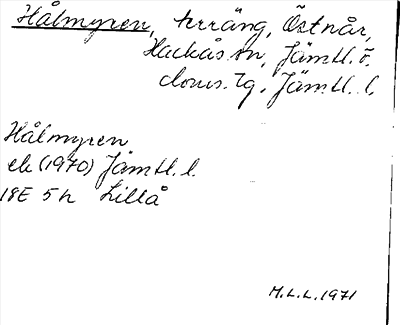 Hålmyren, terräng, Östnår,
Hackås sn, Jämtl. ö.
doms. tg, Jämtl. l.
Hålmyren
ek (1970) Jämtl. l.
18E 5h Lillå
M.L.L. 1971